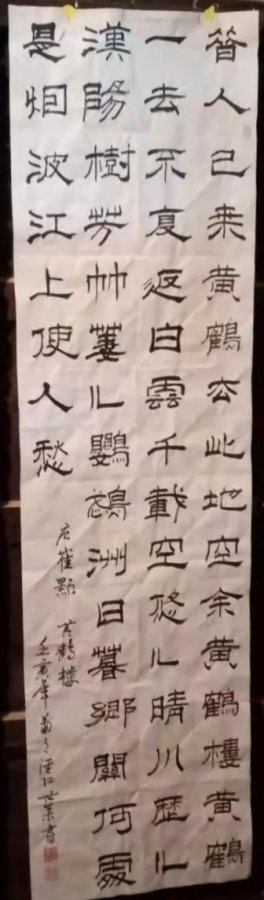 昔人已乘黄鶴去此地空余黄鶴樓黄鶴
一去不复返白雲千載空悠〻晴川歷〻
漢陽樹芳艸萋〻鸚鵡洲日暮鄉關何處
是烟波江上使人愁
唐崔顥 黄鹤楼
壬寅年菊月世荣書